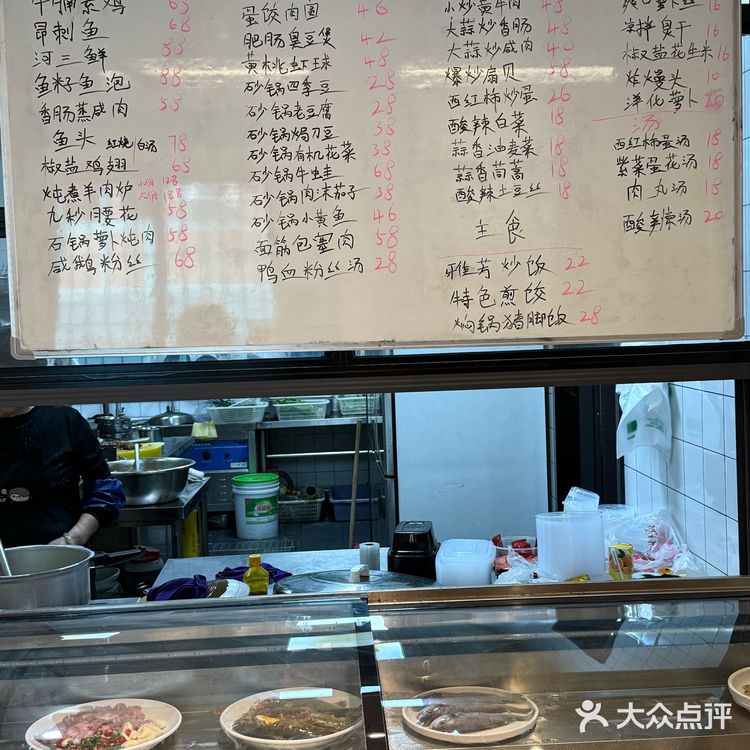 昂刺鱼 68
河三鲜 88
鱼籽鱼泡 88
香肠蒸咸肉 58
鱼头 红烧/白汤 78
椒盐鸡翅 68
炖煮羊肉炉 小份128 大份188
九秒腰花 58
石锅萝卜炖肉 58
咸鹅粉丝 68
蛋饺肉圆 48
肥肠臭豆煲 42
黄桃虾球 48
砂锅四季豆 28
砂锅老豆腐 28
砂锅焗刀豆 38
砂锅有机花菜 38
砂锅牛蛙 68
砂锅肉沫茄子 38
砂锅小黄鱼 46
面筋包塞肉 58
鸭血粉丝汤 28
小炒黄牛肉 48
大蒜炒香肠 48
大蒜炒咸肉 40
爆炒扇贝 58
西红柿炒蛋 26
酸辣白菜 18
蒜香油麦菜 18
蒜香茼蒿 18
酸辣土豆丝 18
主食
雅芳炒饭 22
特色煎饺 22
焖锅猪脚饭 28
凉拌臭干 16
椒盐花生米 16
炸馒头 10
洋化萝卜 20
汤
西红柿蛋汤 18
紫菜蛋花汤 18
肉丸汤 18
酸辣汤 20
大众点评